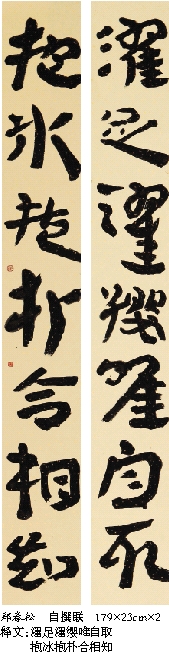 濯足濯纓唯自取
抱冰抱朴合相知
郑春松 自撰联 179×23cm×2
释文:濯足濯缨唯自取
抱冰抱朴合相知